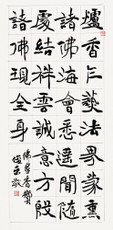 爐香乍爇法界蒙熏
諸佛海會悉遙聞隨
處結祥雲誠意方殷
諸佛現全身